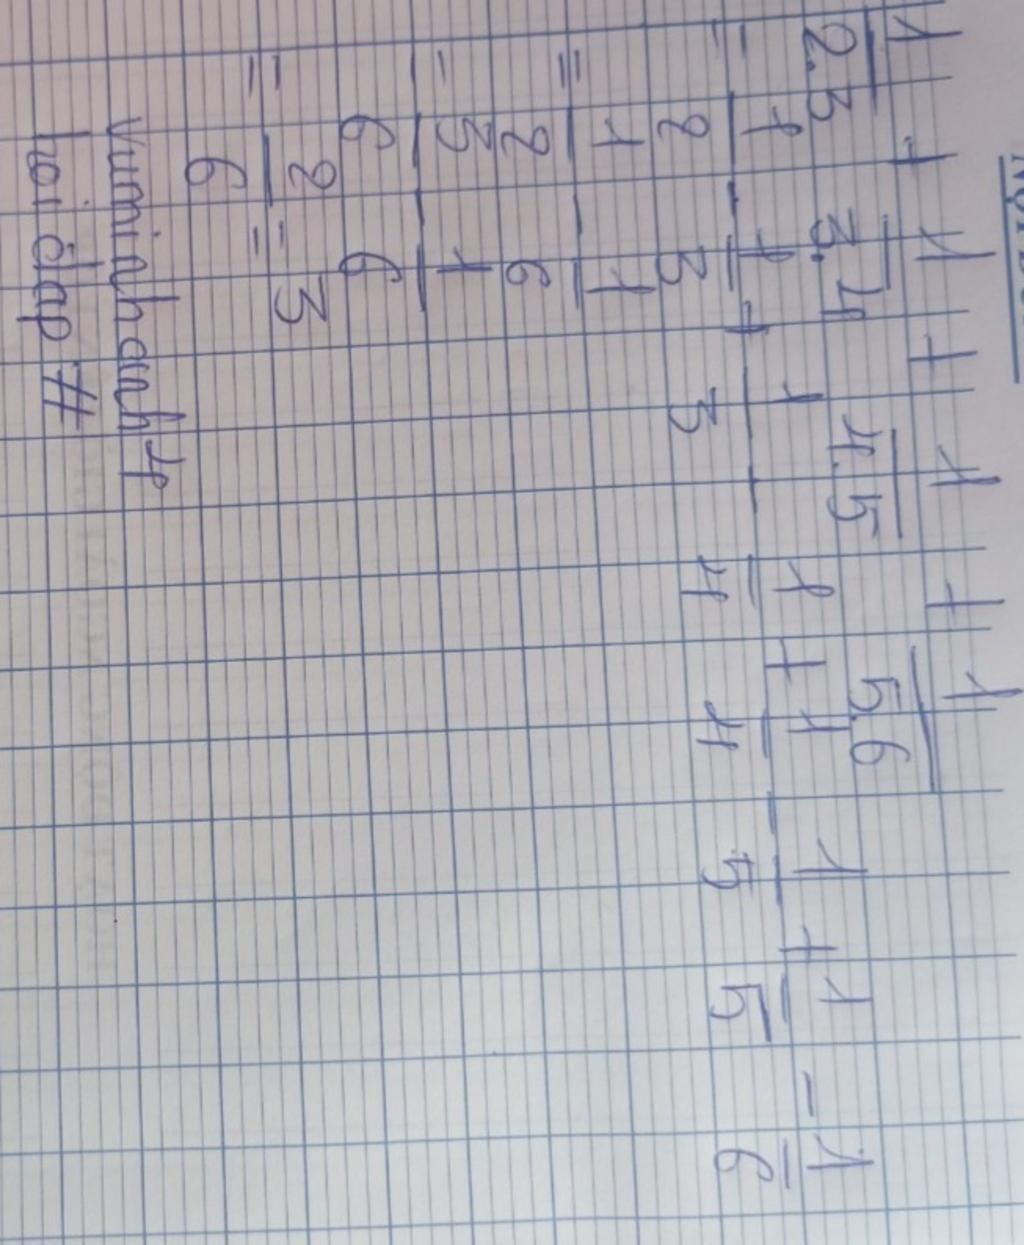 1/2.3 + 1/3.4 + 1/4.5 + 1/5.6
= 1/2 - 1/3 + 1/3 - 1/4 + 1/4 - 1/5 + 1/5 - 1/6
= 1/2 - 1/6
= 3/6 - 1/6
= 2/6 = 3
vuminhanh4
hoidap #